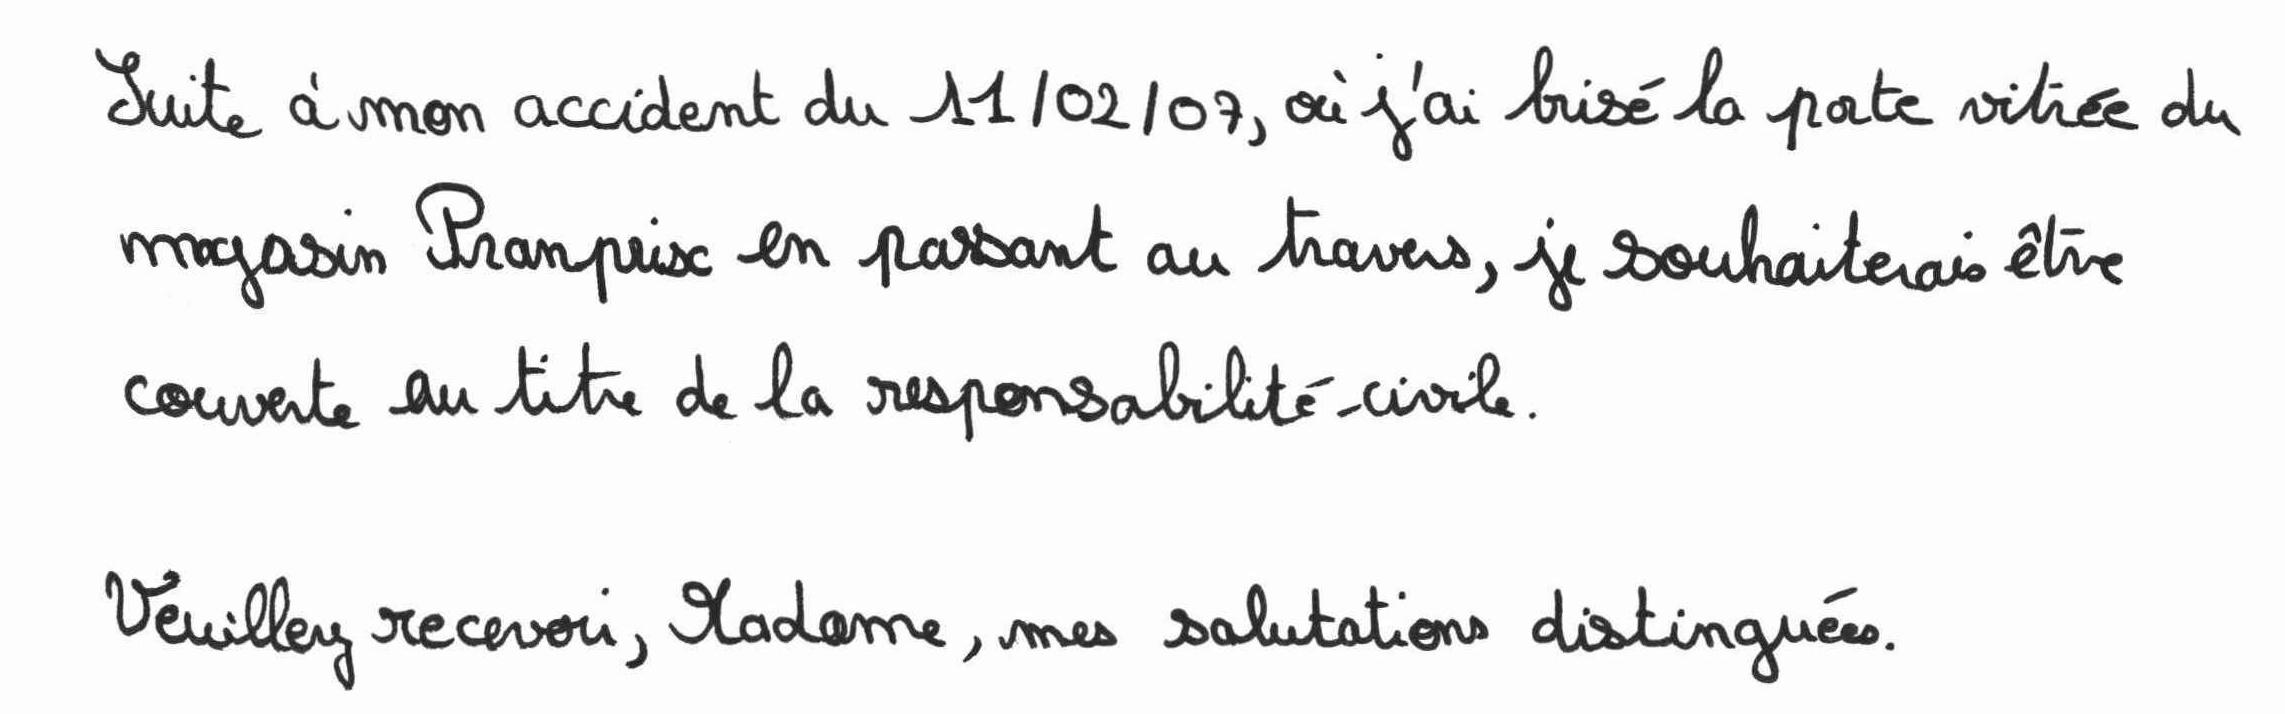 Suite à mon accident du 11/02/07, où j'ai brisé la porte vitrée du
magasin Franprix en passant au travers, je souhaiterais être
couverte au titre de la responsabilité-civile.
Veuillez recevoir, Madame, mes salutations distinguées.